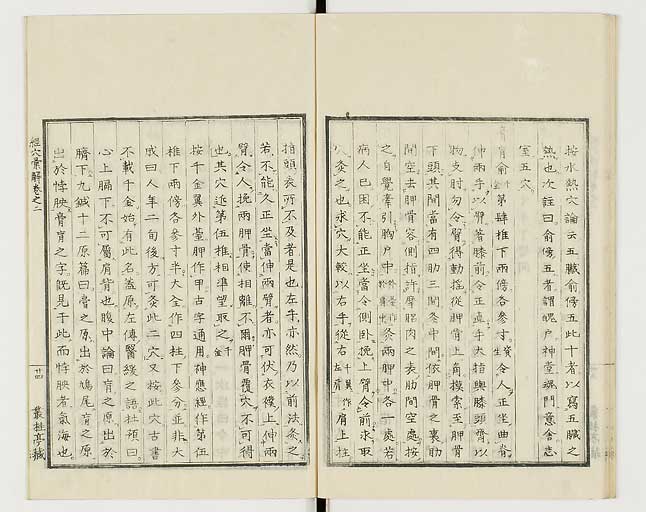 按水熱穴論云五臟俞傍五此十者以寫五臟之
熱也次註曰俞傍五者謂魄戸神堂魂門意舍志
室五穴
膏肓俞 第肆椎下兩傍各參寸 令人正坐曲脊
伸兩手以臂著膝前令正直手大指與膝頭齊以
物支肘勿令臂得動搖從胛骨上角摸索至胛骨
下頭其間當有四肋三間灸中間依胛骨之裏肋
間空去胛骨容側指許摩𦛗肉之表肋間空處按
之自覺牽引胸戸中 灸兩胛中各一處若
病人已困不能正坐當令側臥挽上臂令前求取
灸之也求穴大較以右手從右 肩上住
指頭表所不及者是也左手亦然乃以前法灸之
若不能久正坐當伸兩臂者亦可伏衣襆上伸兩
臂令人挽兩胛骨使相離不爾胛骨覆穴不可得
也其穴近第伍椎相準望取之
按千金翼外臺胛作甲古字通用神應經作第伍
椎下兩傍各參寸半大全作四柱下參分並非大
成曰人年二旬後方可灸此二穴又按此穴古書
不載千金始有此名蓋原左傳醫緩之語杜預曰
心上膈下不可屬肩背也腹中論曰肓之原出於
臍下九鍼十二原篇曰膏之原出於鳩尾肓之原
出於悖胦膏肓之字既見于此而悖胦者氣海也
經穴彙解卷之二
廿四
叢桂亭藏